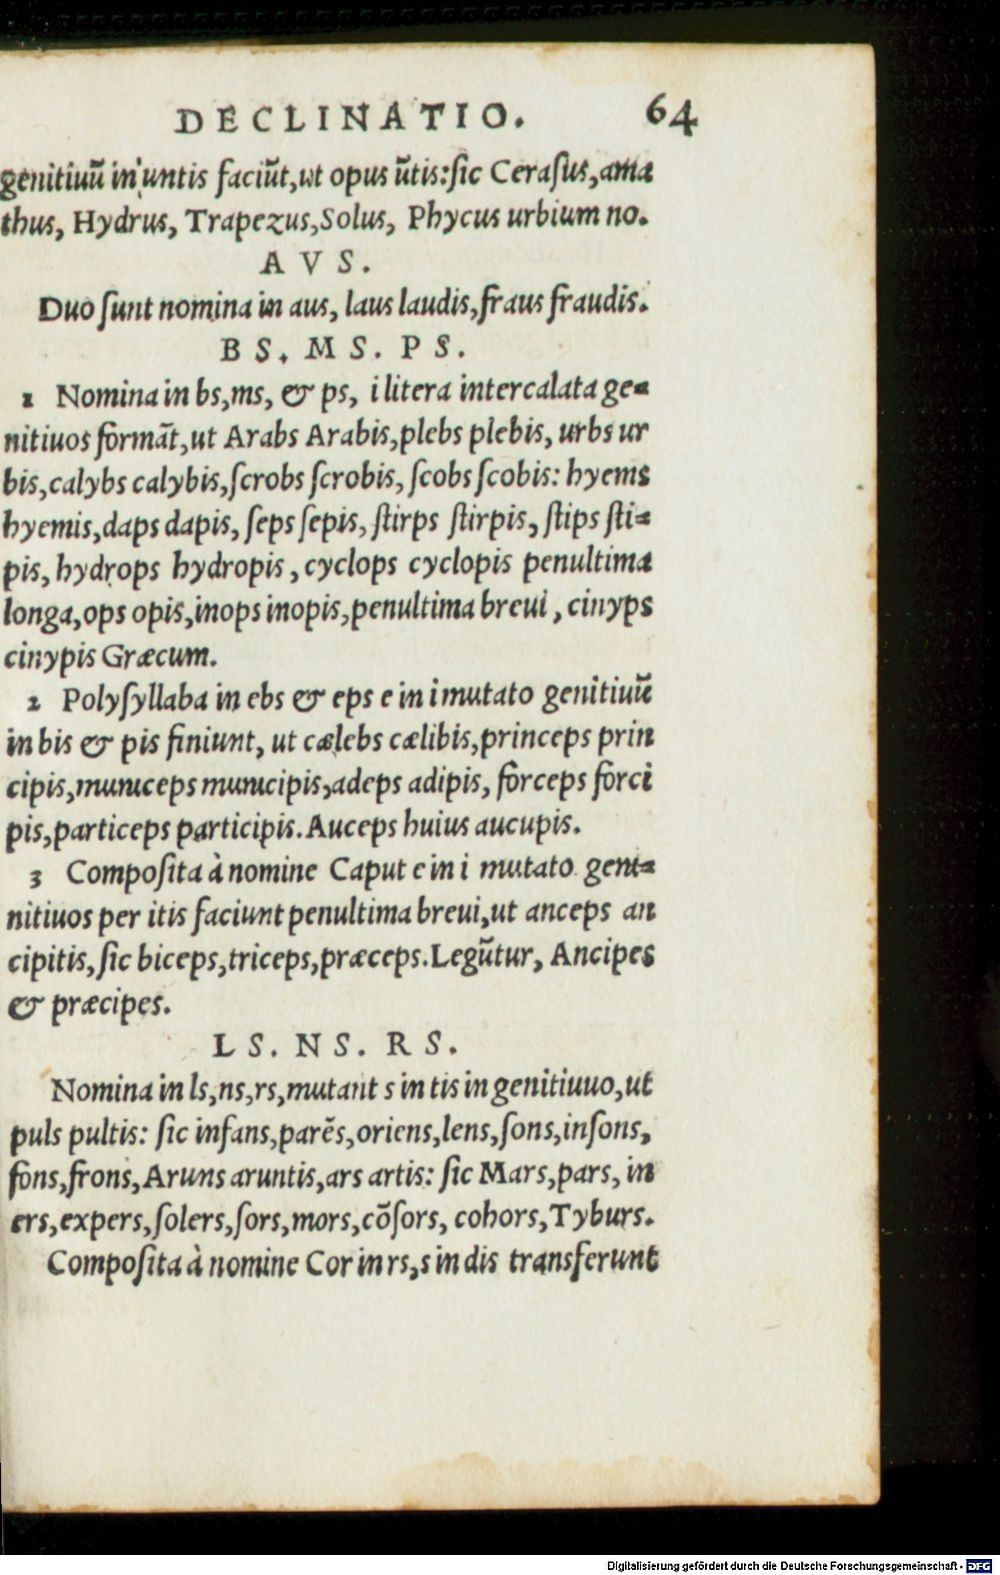 DECLINATIO. 64
genitiuū in untis faciūt, ut opus ūtis: ſic Ceraſus, ama
thus, Hydrus, Trapezus, Solus, Phycus urbium no.
A V S.
Duo ſunt nomina in aus, laus laudis, fraus fraudis.
B S. M S. P S.
1 Nomina in bs, ms, & ps, i litera intercalata ge=
nitiuos formāt, ut Arabs Arabis, plebs plebis, urbs ur
bis, calybs calybis, ſcrobs ſcrobis, ſcobs ſcobis: hyems
hyemis, daps dapis, ſeps ſepis, ſtirps ſtirpis, ſtips ſti=
pis, hydrops hydropis, cyclops cyclopis penultima
longa, ops opis, inops inopis, penultima breui, cinyps
cinypis Græcum.
2 Polyſyllaba in ebs & eps e in i mutato genitiuū
in bis & pis finiunt, ut cælebs cælibis, princeps prin
cipis, municeps municipis, adeps adipis, forceps forci
pis, particeps participis. Auceps huius aucupis.
3 Compoſita à nomine Caput e in i mutato geni=
nitiuos per itis faciunt penultima breui, ut anceps an
cipitis, ſic biceps, triceps, præceps. Legūtur, Ancipes
& præcipes.
L S. N S. R S.
Nomina in ls, ns, rs, mutant s in tis in genitiuuo, ut
puls pultis: ſic infans, parēs, oriens, lens, ſons, inſons,
fons, frons, Aruns aruntis, ars artis: ſic Mars, pars, in
ers, expers, ſolers, ſors, mors, cōſors, cohors, Tyburs.
Compoſita à nomine Cor in rs, s in dis transferunt
Digitalisierung gefördert durch die Deutsche Forschungsgemeinschaft - DFG